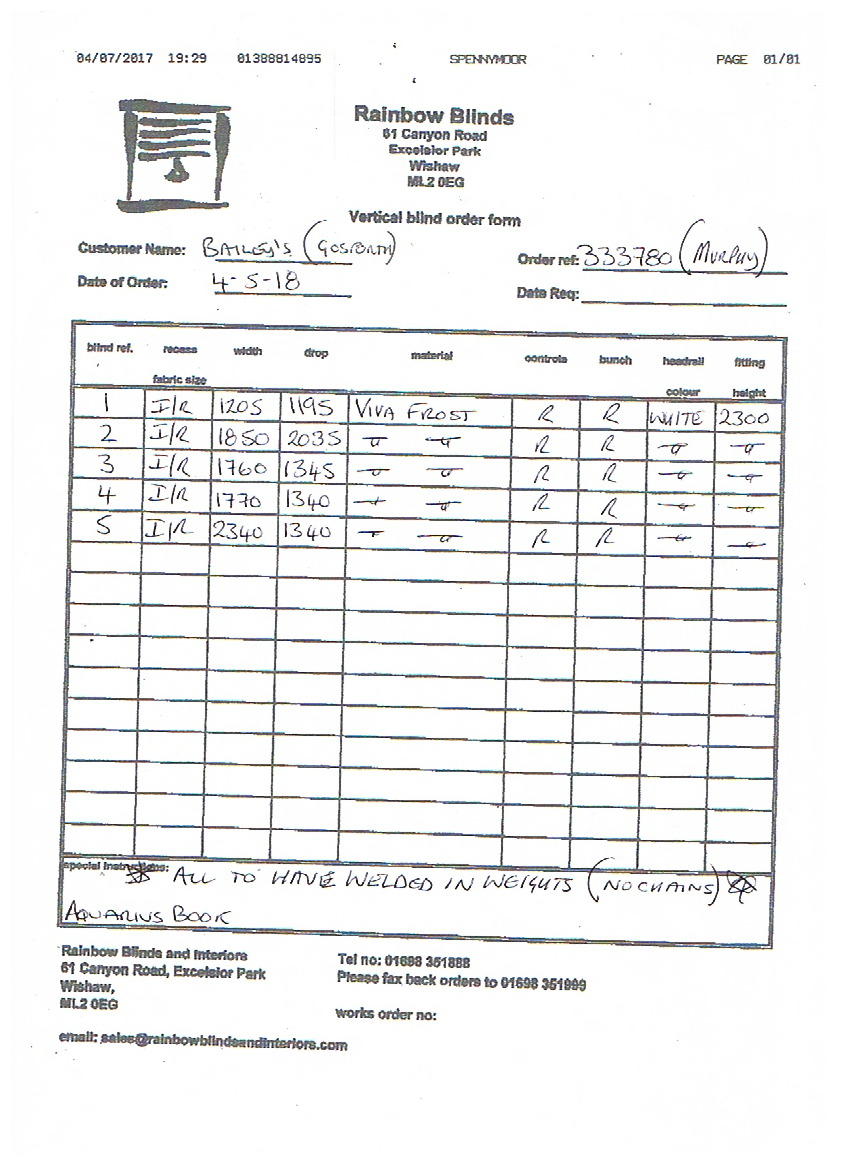 04/07/2017 19:29 01388814895 SPENNYMOOR PAGE 01/01
Rainbow Blinds
61 Canyon Road
Excelsior Park
Wishaw
ML2 0EG
Vertical blind order form
Customer Name: BAILEY'S (GOSFORTH)
Order ref: 333780 (MURPHY)
Date of Order: 4-5-18
Date Req:
blind ref. recess width drop material controls bunch headrail fitting
fabric size colour height
1 I/R 1205 1195 VIVA FROST R R WHITE 2300
2 I/R 1850 2035 " " R R " "
3 I/R 1760 1345 " " R R " "
4 I/R 1770 1340 " " R R " "
5 I/R 2340 1340 " " R R " "
special instructions:
ALL TO HAVE WELDED IN WEIGHTS (NO CHAINS)
AQUARIUS BOOK
Rainbow Blinds and Interiors
61 Canyon Road, Excelsior Park
Wishaw,
ML2 0EG
Tel no: 01698 351888
Please fax back orders to 01698 351999
works order no:
email: sales@rainbowblindsandinteriors.com